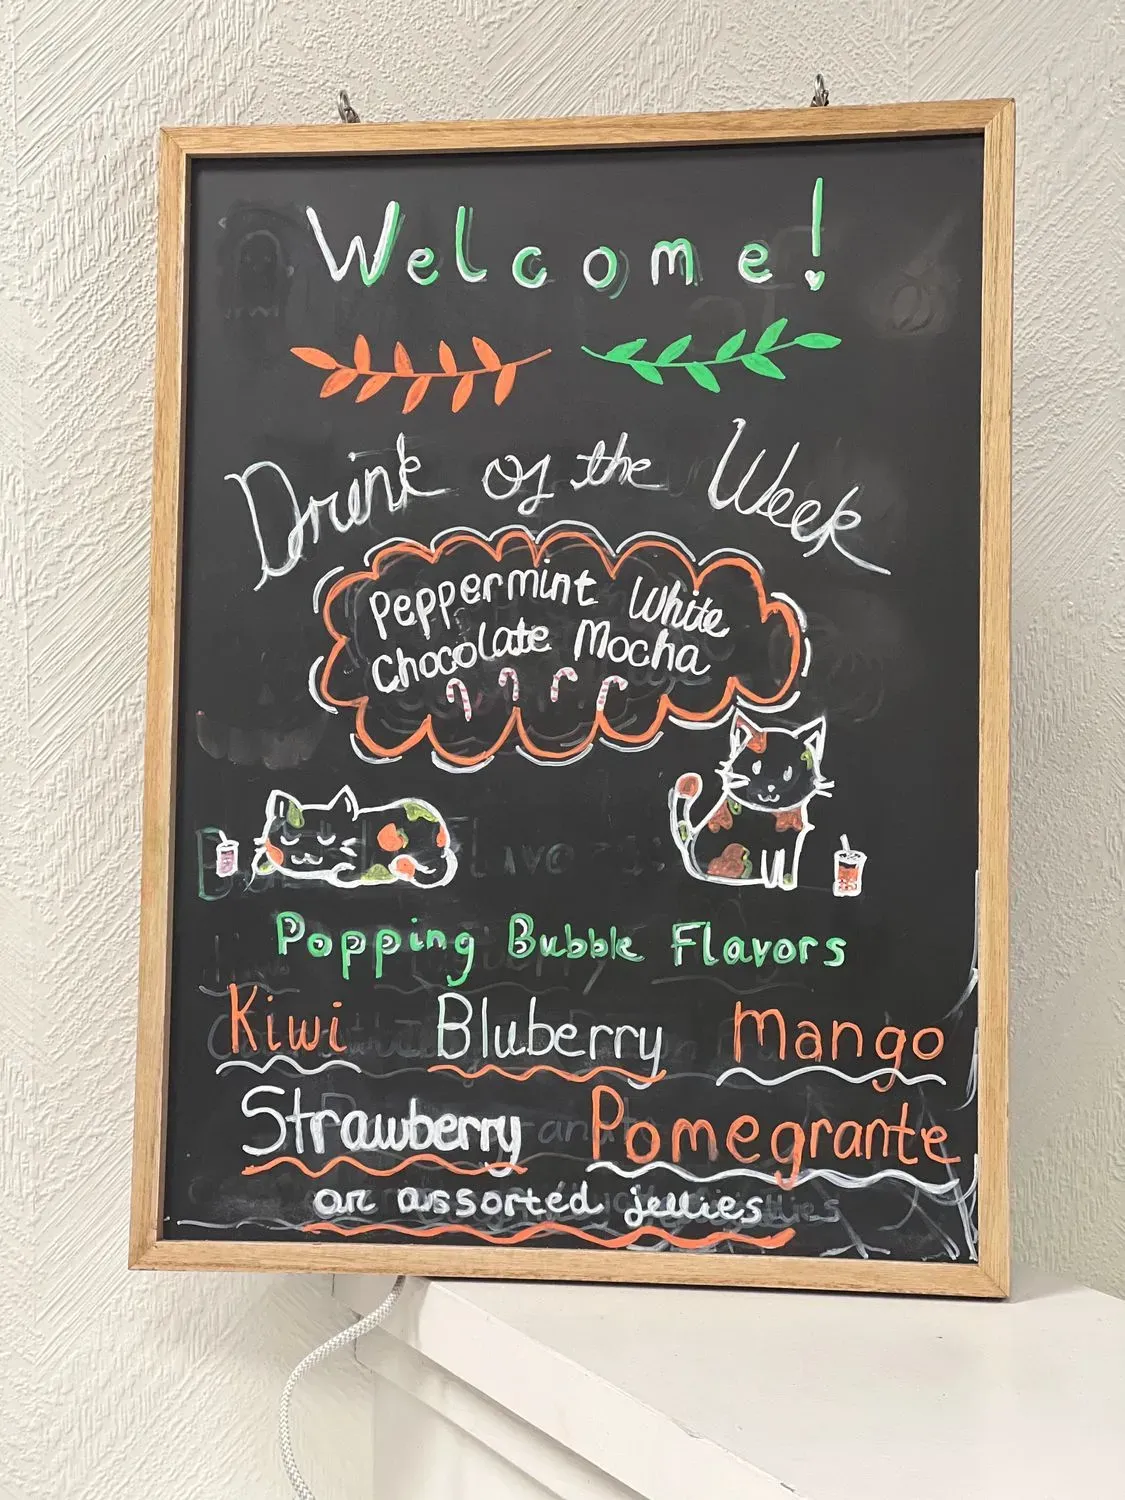 Welcome!
Drink of the Week
Peppermint White
Chocolate Mocha
Popping Bubble Flavors
Kiwi Bluberry Mango
Strawberry Pomegrante
or assorted jellies